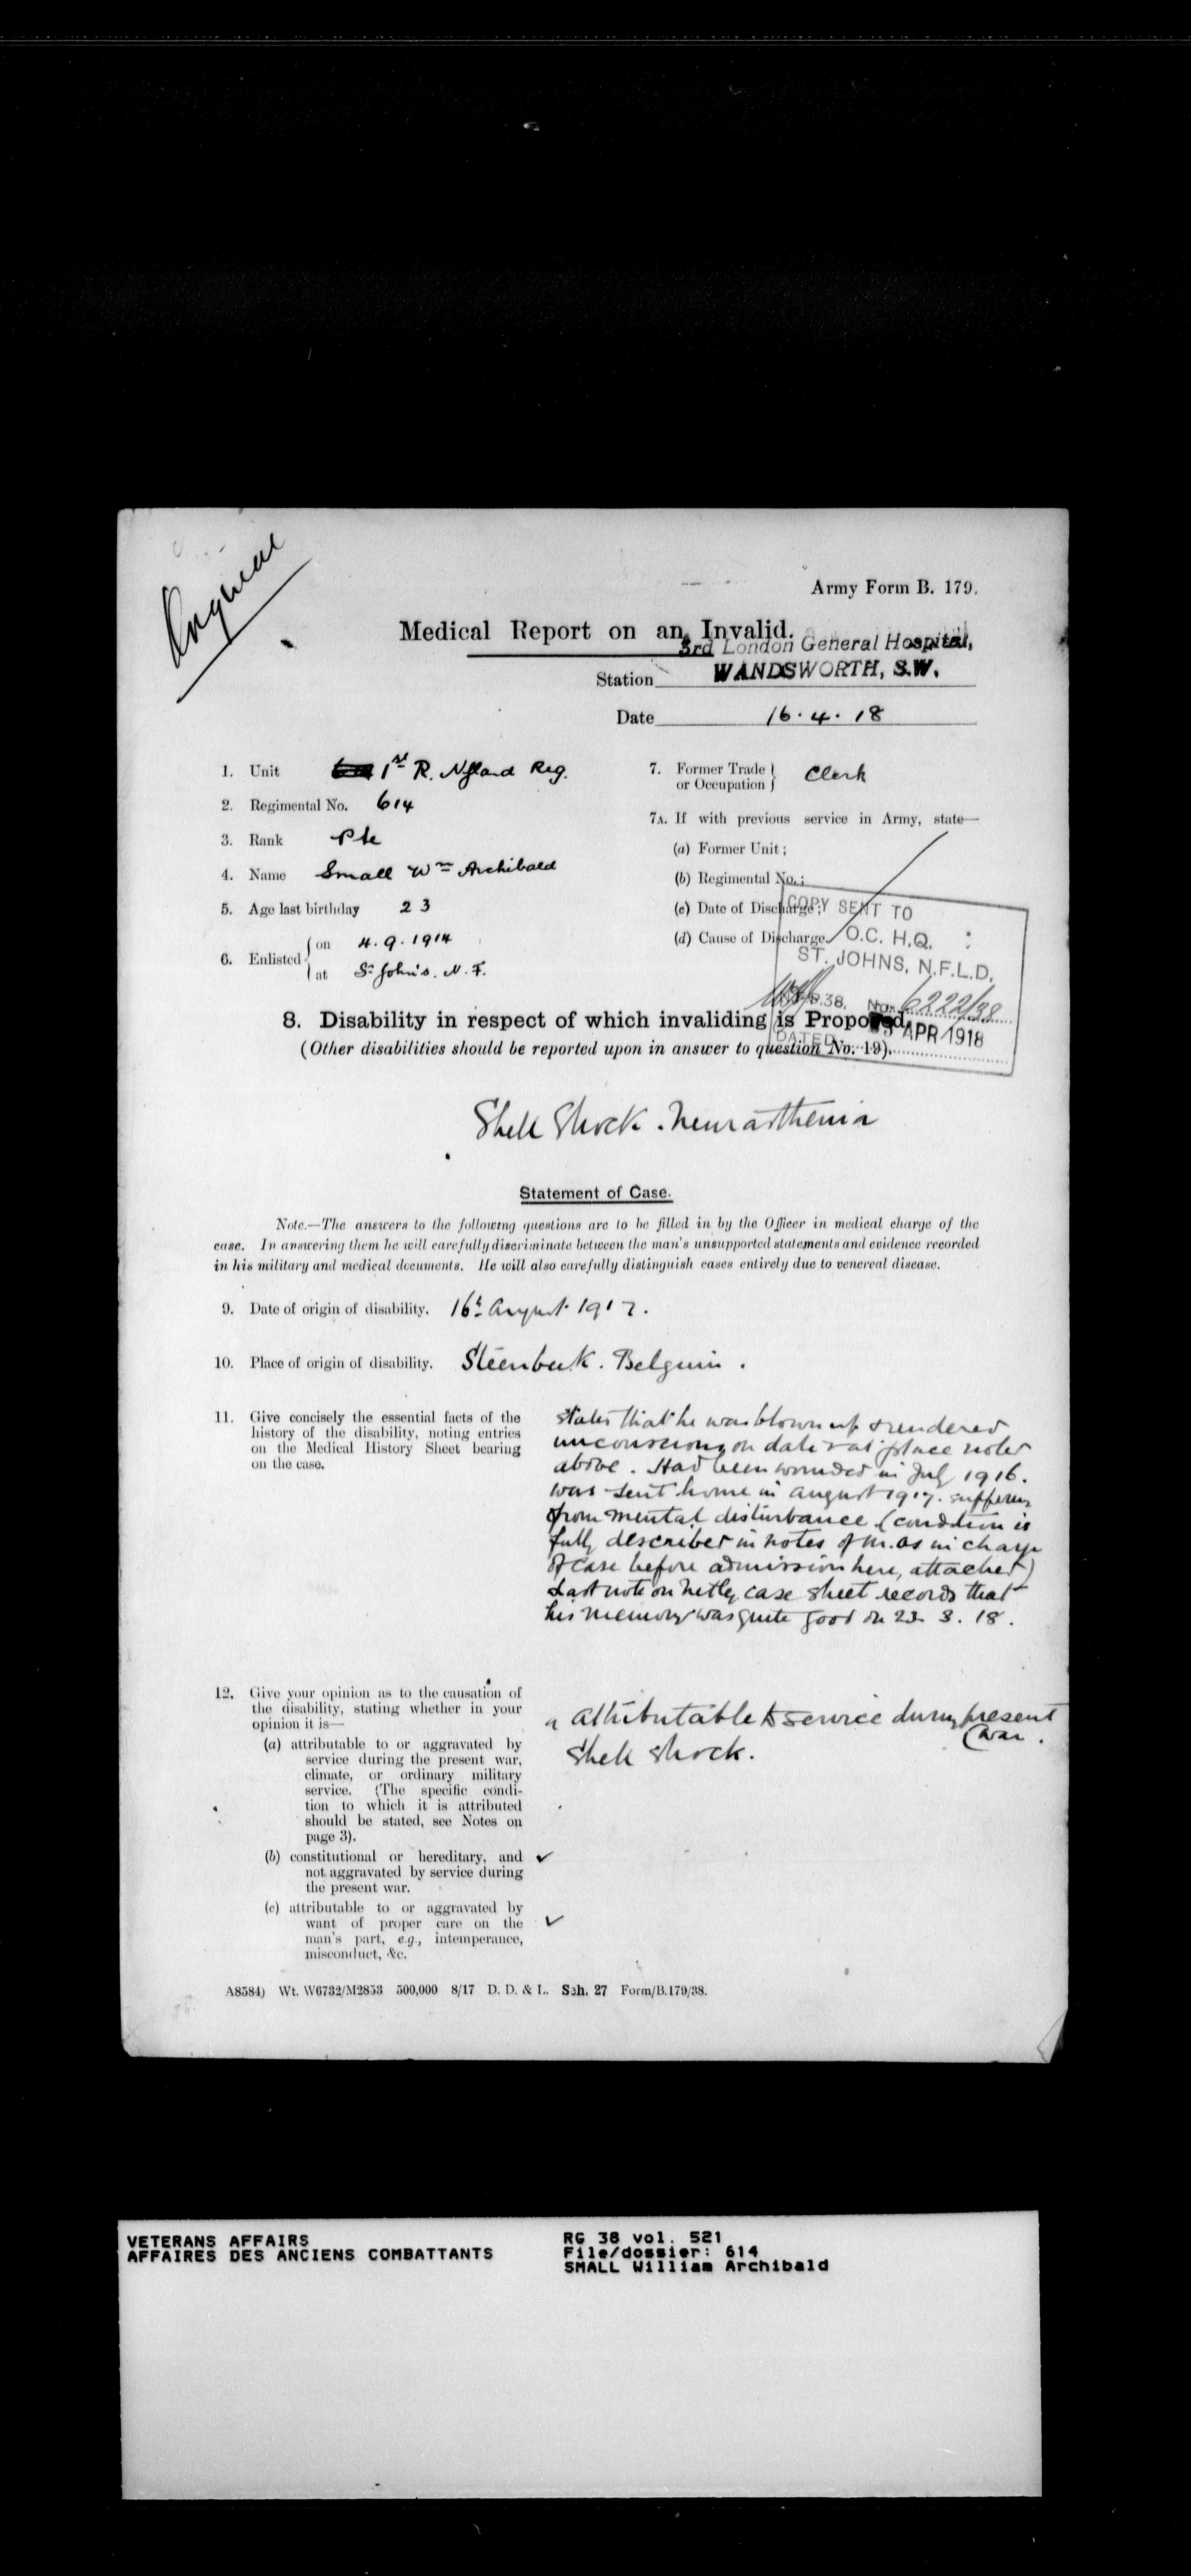 Original
Army Form B. 179.
Medical Report on an Invalid.
3rd London General Hospital,
Station WANDSWORTH, S.W.
Date 16. 4. 18
1. Unit 1st R. Nfland Reg.
2. Regimental No. 614
3. Rank Pte
4. Name Small Wm Archibald
5. Age last birthday 23
6. Enlisted { on 4. 9. 1914
at St John's. N. F.
7. Former Trade or Occupation } Clerk
7A. If with previous service in Army, state—
(a) Former Unit;
(b) Regimental No.;
(c) Date of Discharge;
(d) Cause of Discharge.
COPY SENT TO
O.C. H.Q.
ST. JOHNS, N.F.L.D.
No. 6222/38
DATED APR 1918
8. Disability in respect of which invaliding is Proposed.
(Other disabilities should be reported upon in answer to question No. 19).
Shell Shock. Neurasthenia
Statement of Case.
Note.—The answers to the following questions are to be filled in by the Officer in medical charge of the
case. In answering them he will carefully discriminate between the man's unsupported statements and evidence recorded
in his military and medical documents. He will also carefully distinguish cases entirely due to venereal disease.
9. Date of origin of disability. 16th August 1917.
10. Place of origin of disability. Steenbeek. Belgium.
11. Give concisely the essential facts of the
history of the disability, noting entries
on the Medical History Sheet bearing
on the case.
States that he was blown up & rendered
unconscious on date & at place noted
above. Had been wounded in July 1916.
was sent home in August 1917. suffering
from mental disturbance (condition is
fully described in notes of M.Os in charge
of case before admission here, attached)
Last note on Netley case sheet records that
his memory was quite good on 22. 3. 18.
12. Give your opinion as to the causation of
the disability, stating whether in your
opinion it is—
(a) attributable to or aggravated by
service during the present war,
climate, or ordinary military
service. (The specific condi-
tion to which it is attributed
should be stated, see Notes on
page 3).
(b) constitutional or hereditary, and
not aggravated by service during
the present war.
(c) attributable to or aggravated by
want of proper care on the
man's part, e.g., intemperance,
misconduct, &c.
a attributable to service during present
war.
Shell shock.
A8584) Wt. W6732/M2853 500,000 8/17 D. D. & L. Sch. 27 Form/B.179/38.
VETERANS AFFAIRS
AFFAIRES DES ANCIENS COMBATTANTS
RG 38 vol. 521
File/dossier: 614
SMALL William Archibald